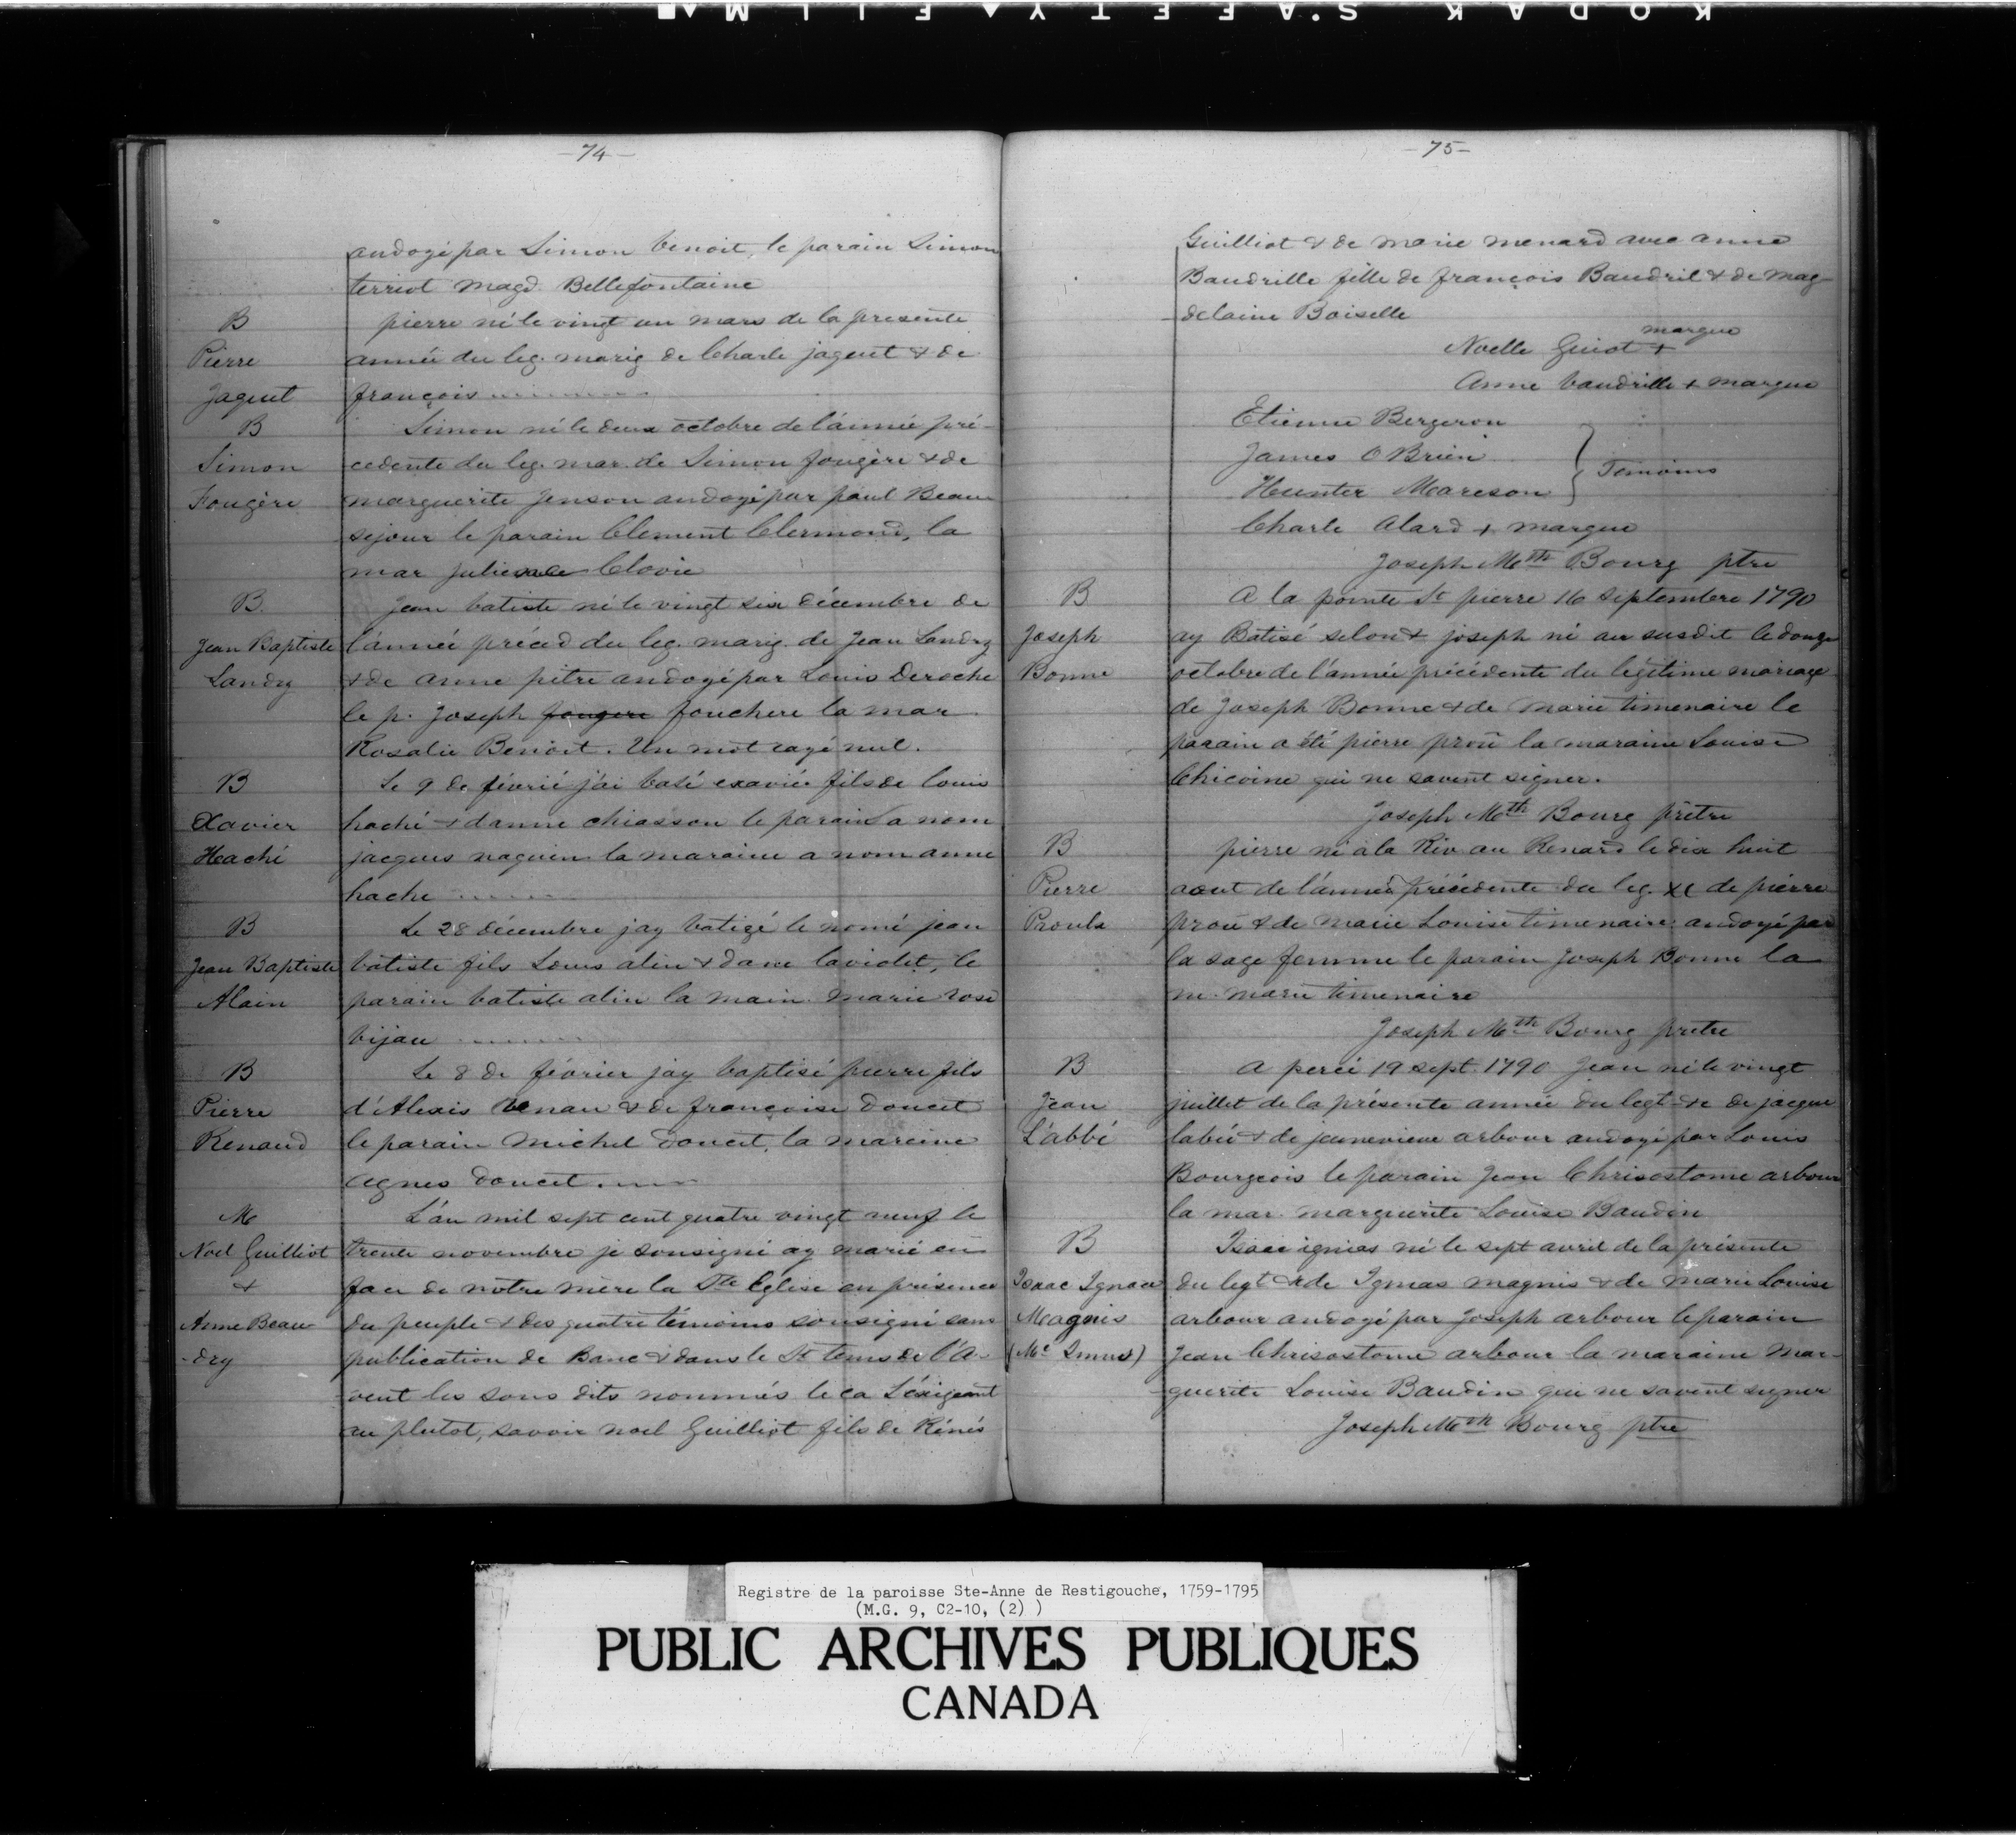 KODAK S.AFETY FILM
-74-
andoyé par Simon benoit, le parain Simon
terriot magd. Bellefontaine
B
Pierre
Jaquet
pierre né le vingt un mars de la presente
année du leg. marig de Charle jaquet & de
françois
B
Simon
Fougère
Simon né le deux octobre de l'année pré-
cedente du leg. mar. de Simon fougère & de
marguerite Jenson andoyé par paul Beau
sejour le parain Clement Clermond, la
mar Clovie
B
Jean Baptiste
Landry
Jean batiste né le vingt six décembre de
l'année précéd du leg. marig. de Jean Landry
& de anne pitre andoyé par Louis Deroche
le p. Joseph fougere fouchere la mar
Rosalie Benoit. Un mot rayé nul.
B
Xavier
Haché
Le 9 de févrié j'ai baté exavié fils de louis
haché & danne chiasson le parain a nom
jacques naquin la maraine a nom anne
hache
B
Jean Baptiste
Alain
Le 28 décembre jay batizé le nomé jean
batiste fils Louis alin & dane laviolet, le
parain batiste alin la main. Marie rose
bijau
B
Pierre
Renaud
Le 8 de février jay baptisé pierre fils
d'Alexis venau & de françoise doucet
le parain Michel doucet, la mareine
agnes doucet.
M
Noel Guilliot
&
Anne Beau-
-dry
L'an mil sept cent quatre vingt neuf le
trente novembre je sousigné ay marié en
face de notre mère la Ste Eglise en présence
du peuple & des quatre témoins sousigné sans
publication de Banc & dans le St tems de l'A-
vent les sous dits nommés le ca L'éxigeant
au plutot, savoir noel Guilliot fils de Rénés
-75-
Guilliot & de marie menard avec anne
Baudrille fille de françois Baudril & de mag-
-delaine Boiselle
Noelle Guiot + marque
Anne baudrille + marque
Etienne Bergeron
James O Brien
Hunter Mareson } Temoins
Charle Alard + marque
Joseph Mth Bourg ptre
B
Joseph
Bonne
A la pointe St pierre 16 Septembre 1790
ay Batisé selon & joseph né au susdit le douze
octobre de l'année précédente du légitime mariage
de Joseph Bonne & de Marie timenaire le
parain a été pierre prou la maraine Louise
Chicoine qui ne savent signer.
Joseph Mth Bourg prêtre
B
Pierre
Proulx
pierre né a la Riv. au Renard le dix huit
aout de l'année précédente du leg. de pierre
prou & de Marie Louise timenaire andoyé par
la sage femme le parain Joseph Bonne la
m. marie timenaire
Joseph Mth Bourg pretre
B
Jean
L'abbé
A percé 19 sept. 1790 Jean né le vingt
juillet de la présente année du legt & de jacque
labée & de jeunevieve arbour andoyé par Louis
Bourgeois le parain Jean Chrisostome arbour
la mar. marguerite Louise Baudin
B
Isaac Ignace
Magnis
Isaac ignias né le sept avril de la présente
du legt & de Ignias magnis & de marie Louise
arbour andoyé par Joseph arbour le parain
Jean Chrisostome arbour la maraine Mar-
-guerite Louise Baudin qui ne savent signer
Joseph Mth Bourg ptre
Registre de la paroisse Ste-Anne de Restigouche, 1759-1795
(M.G. 9, C2-10, (2) )
PUBLIC ARCHIVES PUBLIQUES
CANADA